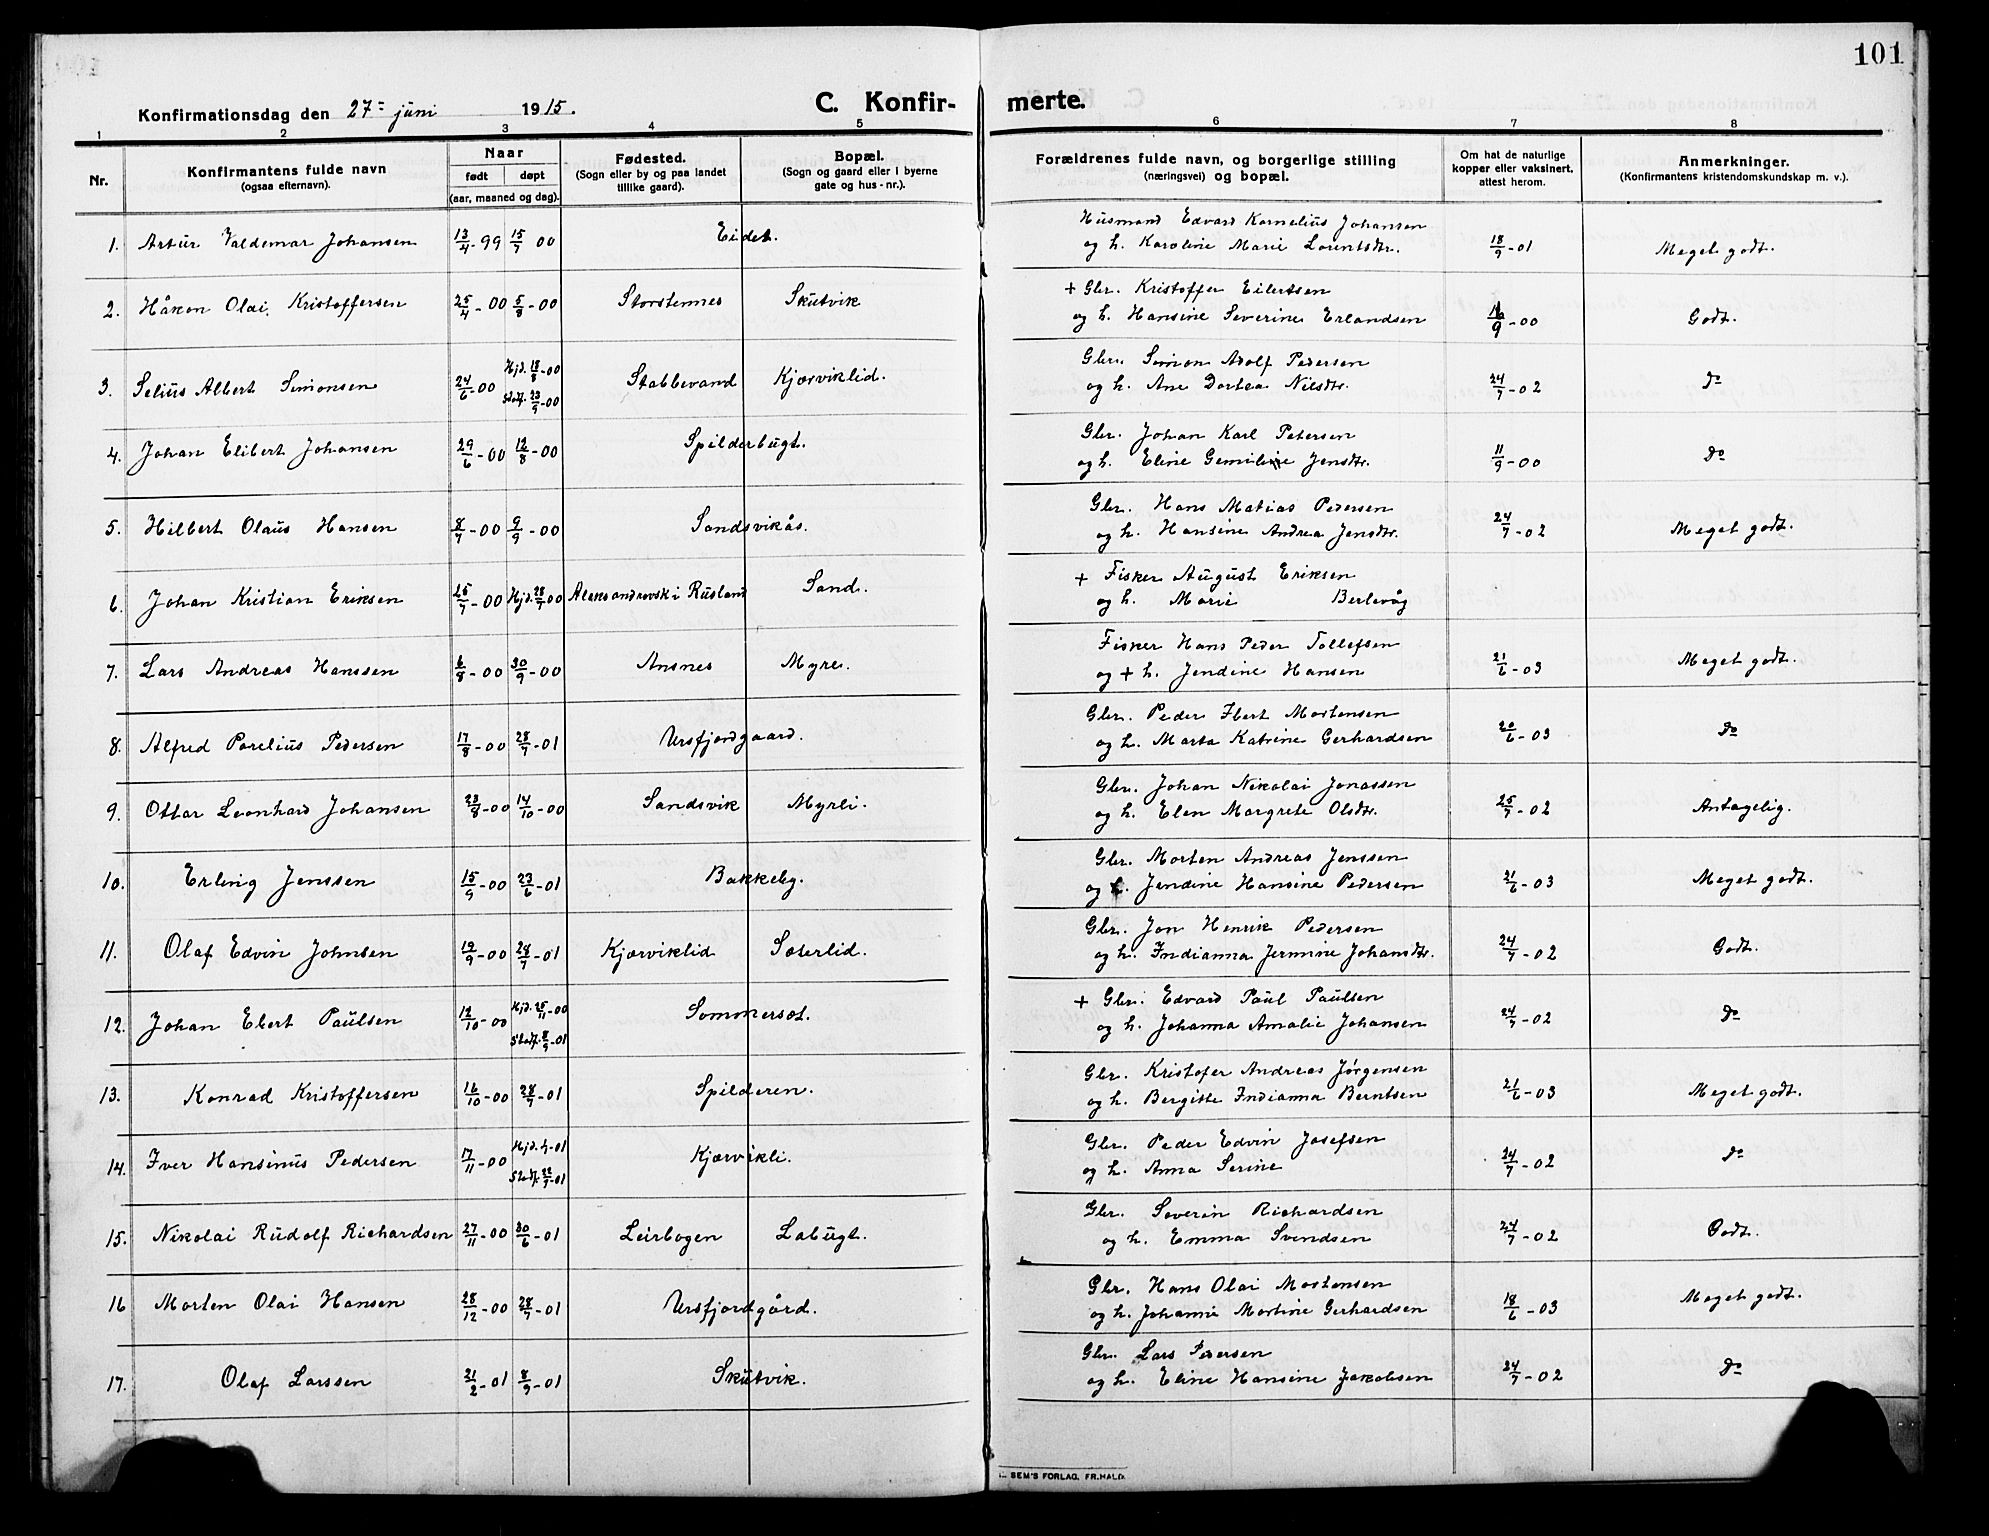 101
Konfirmationsdag den 27= juni 1915. C. Konfir- merte.
1 2 3 4 5 6 7 8
Nr. Konfirmantens fulde navn (ogsaa efternavn). Naar født døpt (aar, maaned og dag). Fødested. (Sogn eller by og paa landet tillike gaard). Bopæl. (Sogn og gaard eller i byerne gate og hus-nr.). Forældrenes fulde navn, og borgerlige stilling (næringsvei) og bopæl. Om hat de naturlige kopper eller vaksinert, attest herom. Anmerkninger. (Konfirmantens kristendomskundskap m. v.).
1. Artur Valdemar Johansen 13/4-99 15/7 00 Eidet. Husmand Edvard Kornelius Johansen
og h. Karoline Marie Lorentsdtr. 18/9-01 Meget godt.
2. Håkon Olai Kristoffersen 25/4-00 5/8-00 Storstennes Skutvik + Gbr. Kristoffer Eilertsen
og h. Hansine Severine Erlandsen 16/9-00 Godt.
3. Selius Albert Simonsen 24/6-00 Hjd. 18/8-00 Stadf. 23/9-00 Stabbevand Kjærviklid. Gbr. Simon Adolf Pedersen
og h. Ane Dortea Nilsdtr. 24/7-02 do
4. Johan Elibert Johansen 29/6-00 12/8-00 Spilderbugt. Gbr. Johan Karl Petersen
og h. Eline Gemiline Jensdtr. 11/9-00 do
5. Hilbert Olaus Hansen 8/7-00 9/9-00 Sandsvikås. Gbr. Hans Matias Pedersen
og h. Hansine Andrea Jensdtr. 24/7-02 Meget godt.
6. Johan Kristian Eriksen 25/7-00 Hjd. 28/7 00 Aleksandrovsk i Rusland Sand. + Fisker August Eriksen
og h. Marie Berlevåg
7. Lars Andreas Hanssen 6/8-00 30/9-00 Ansnes Myre. Fisker Hans Peder Tollefsen
og + h. Jendine Hansen 21/6-03 Meget godt.
8. Alfred Parelius Pedersen 17/8-00 28/7-01 Ursfjordgaard. Gbr. Peder Ibert Mortensen
og h. Marta Katrine Gerhardsen 20/6-03 do
9. Ottar Leonhard Johansen 23/8-00 14/10-00 Sandsvik Myrli. Gbr. Johan Nikolai Jonassen
og h. Elen Margrete Olsdtr. 25/7-02 Antagelig.
10. Erling Jenssen 15/9-00 23/6-01 Bakkeby. Gbr. Morten Andreas Jenssen
og h. Jendine Hansine Pedersen 21/6-03 Meget godt.
11. Olaf Edvin Johnsen 19/9-00 28/7-01 Kjærviklid Sæterlid. Gbr. Jon Henrik Pedersen
og h. Indianna Jermine Johansdtr. 24/7-02 Godt.
12. Johan Ebert Paulsen 12/10-00 Hjd. 25/11-00 Stadf. 8/9-01 Sommersæt. + Gbr. Edvard Paul Paulsen
og h. Johanna Amalie Johansen 24/7-02 do
13. Konrad Kristoffersen 16/10-00 28/7-01 Spilderen. Gbr. Kristofer Andreas Jørgensen
og h. Bergitte Indianna Berntsen 21/6-03 Meget godt.
14. Iver Hansinus Pedersen 17/11-00 Hjd. -01 Stadf. -01 Kjærvikli. Gbr. Peder Edvin Josefsen
og h. Anna Serine 24/7-02 do
15. Nikolai Rudolf Richardsen 27/11-00 30/6-01 Leirbogen Labugt. Gbr. Severin Richardsen
og h. Emma Svendsen 24/7-02 Godt.
16 Morten Olai Hansen 28/12-00 28/7-01 Ursfjordgård. Gbr. Hans Olai Mortensen
og h. Johanne Martine Gerhardsen 18/6-03 Meget godt.
17. Olaf Larssen 21/2-01 8/9-01 Skutvik. Gbr. Lars Pedersen
og h. Eline Hansine Jakobsen 24/7-02 do
SEM'S FORLAG, FR.HALD.